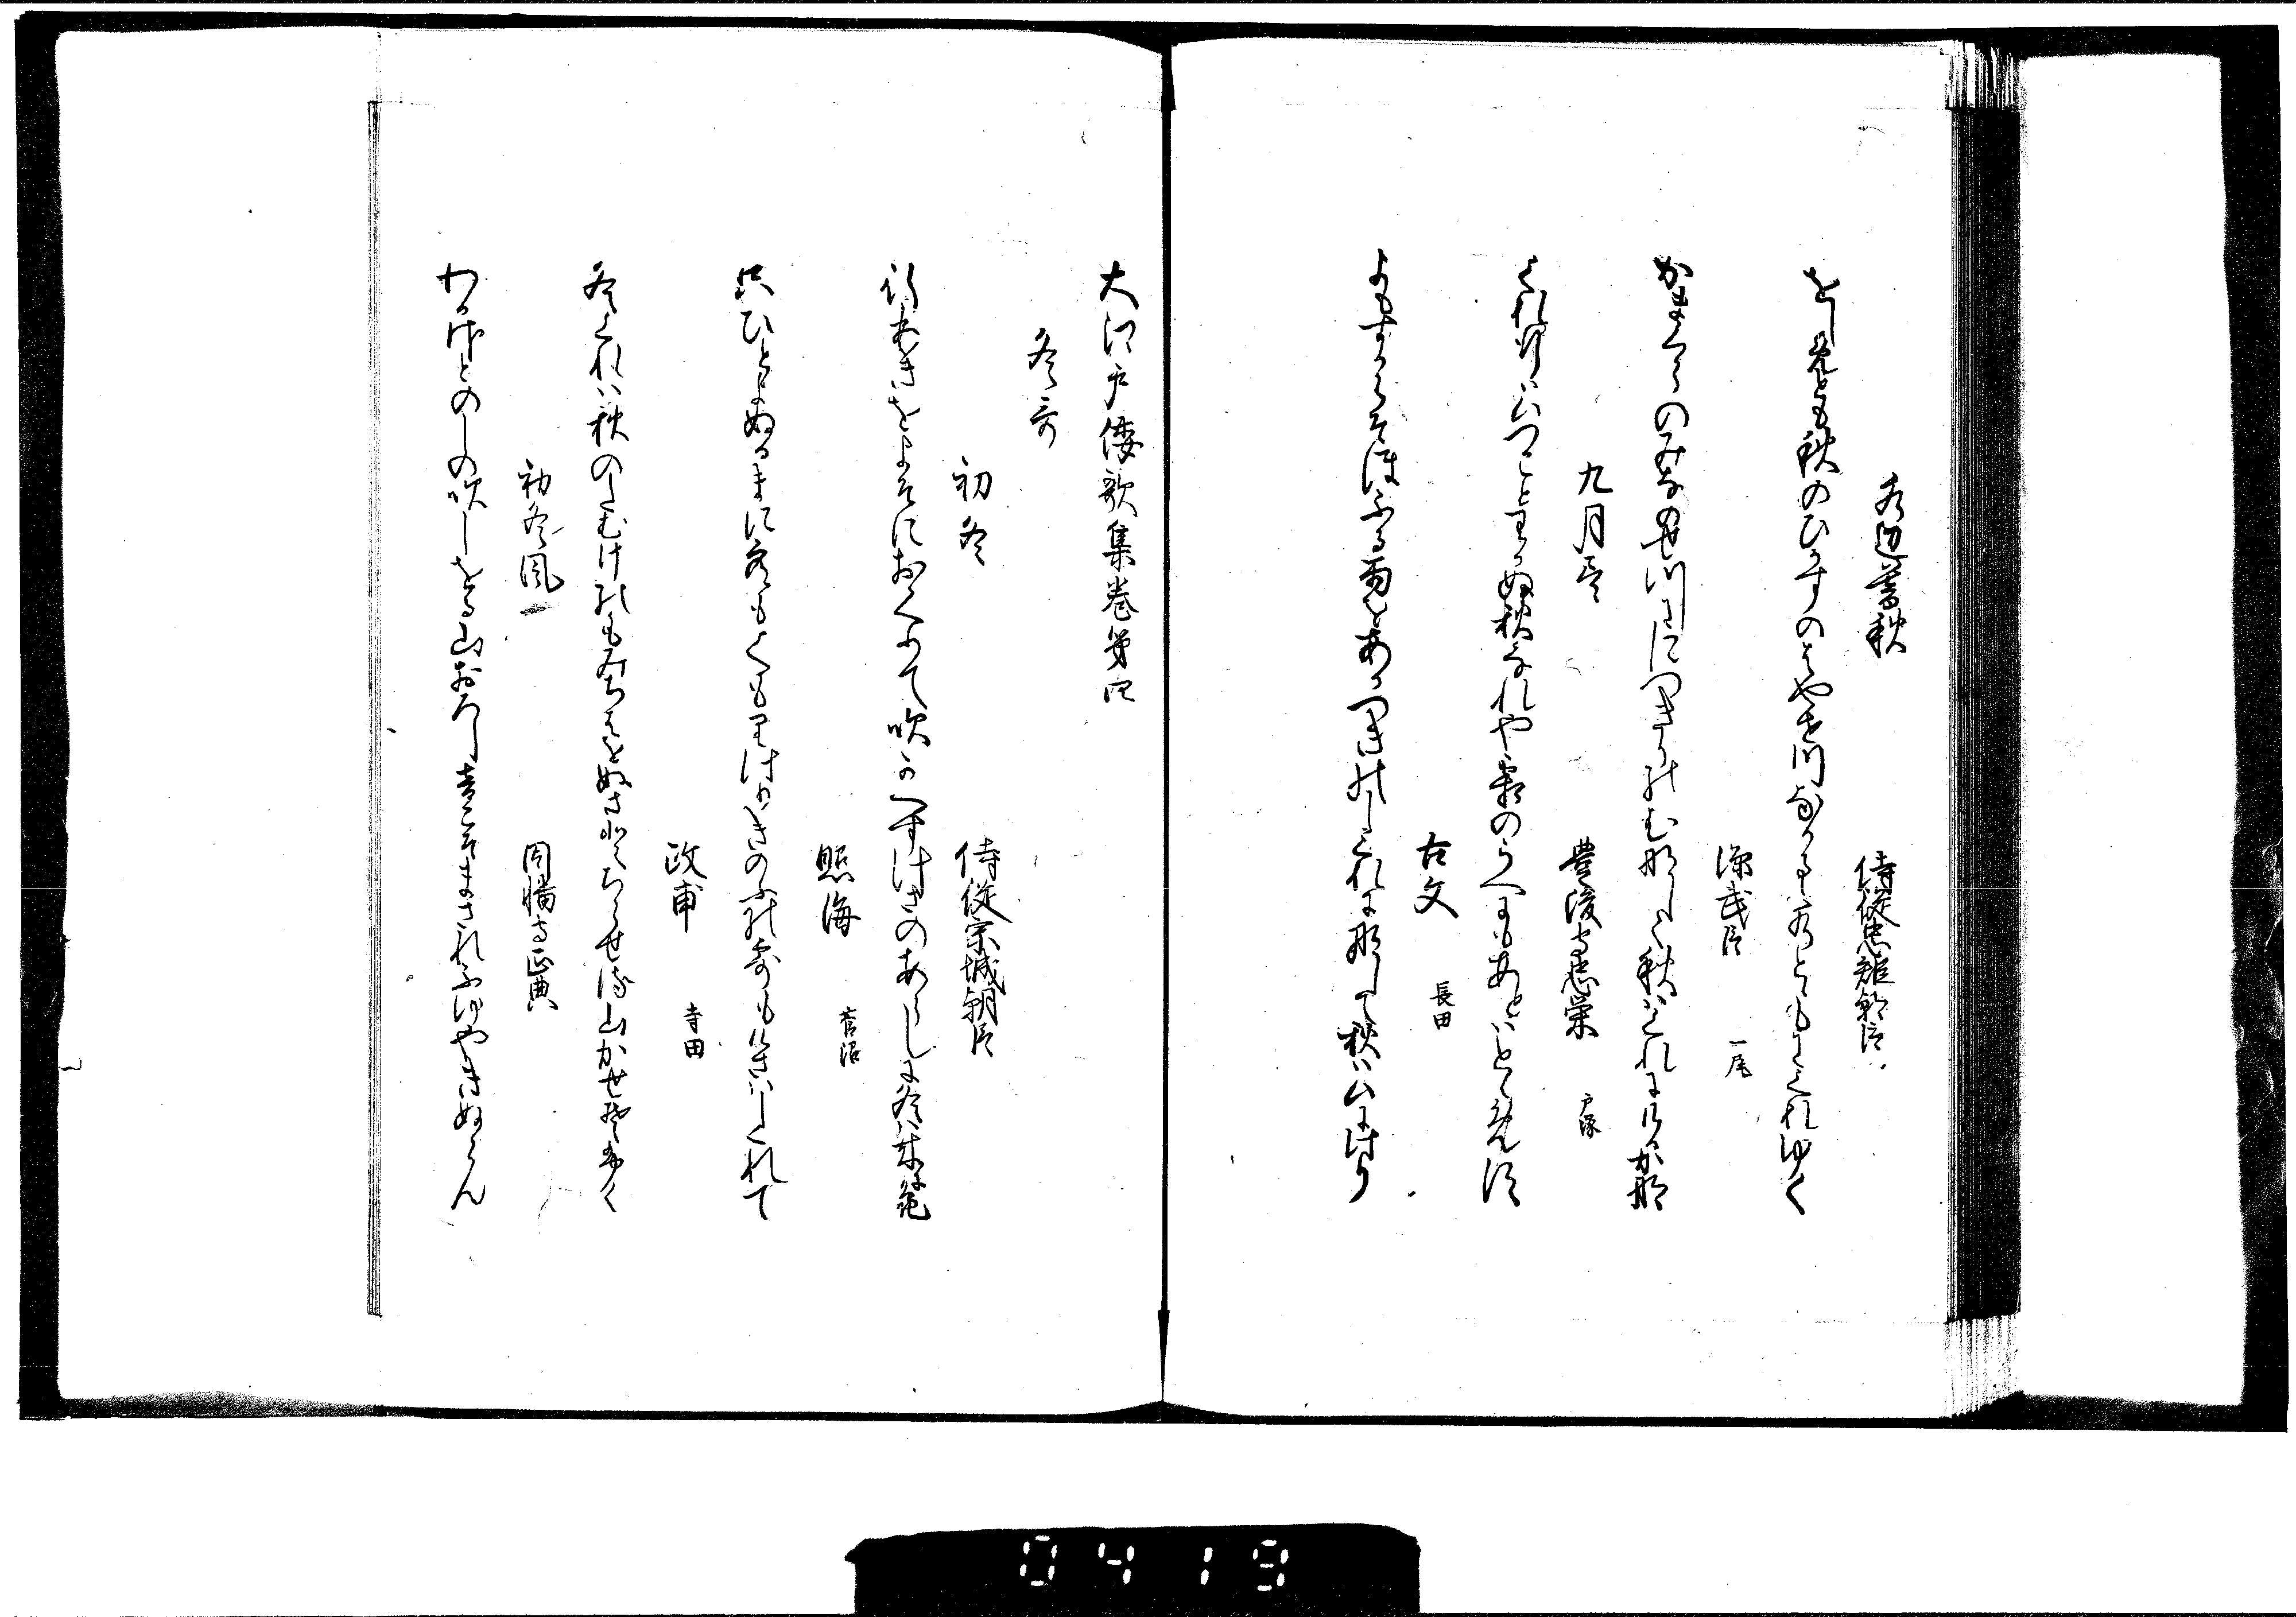 水辺暮秋
侍従忠雄朝臣
をしめとも秋のひかすのはやせ川なかるゝ水とゝもにくれゆく
源武臣 一尾
かまくらのみなのせ川にに
九月尽
豊後守忠栄 戸塚
くれゆけはいつことまらぬ秋なれや霜のうへにもあとはとゝめす
古文 長田
よもすからそほふる雨をあかつきのしくれになして秋はいにけり
大江戸倭歌集巻第四
冬哥
初冬
侍従宗城朝臣
行あきをよそにおくりて吹かへすけさのあらしに冬は来にけり
照海 菅沼
只ひとよぬるまに冬もくもりけりきのふの
政甫 寺田
冬くれは秋のたむけのもみちはをぬさとちらせる山かせそふく
初冬風
因幡守正典
わかやとのしの吹しをる山おろし音こそまされふゆやきぬらん
0419